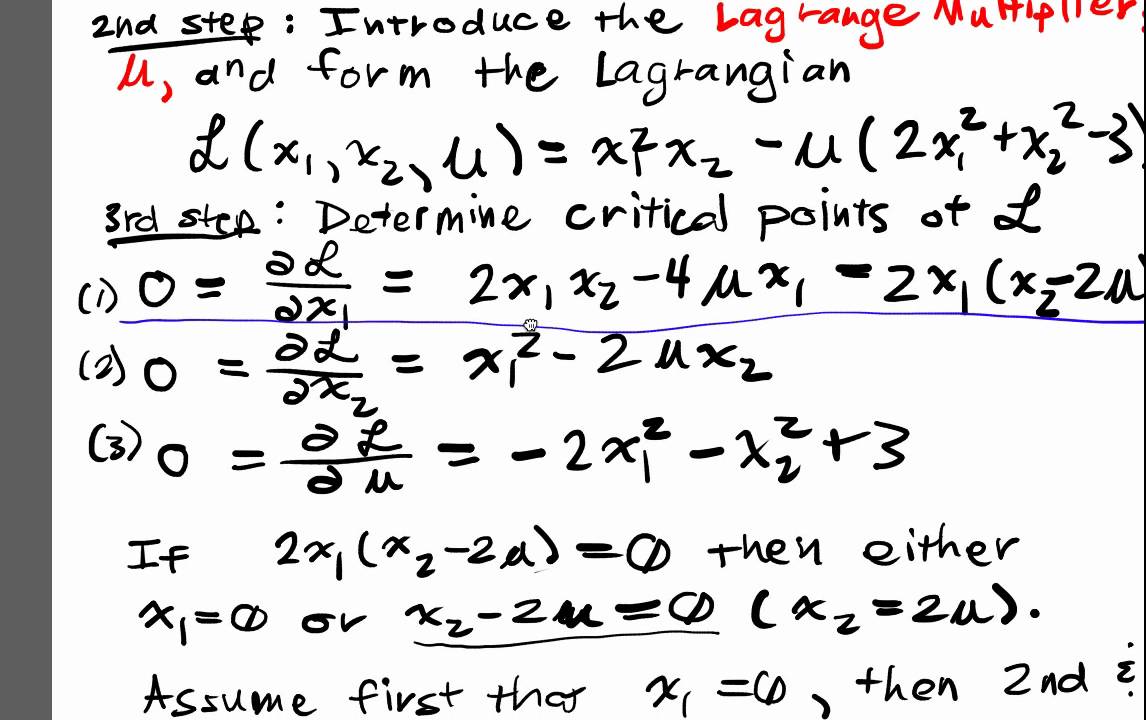 2nd step: Introduce the Lagrange Multiplier,
μ, and form the Lagrangian
ℒ(x₁, x₂, μ) = x₁²x₂ - μ(2x₁²+x₂²-3)
3rd step: Determine critical points of ℒ
(1) 0 = ∂ℒ/∂x₁ = 2x₁x₂ - 4μx₁ = 2x₁(x₂-2μ
(2) 0 = ∂ℒ/∂x₂ = x₁² - 2μx₂
(3) 0 = ∂ℒ/∂μ = -2x₁² - x₂² + 3
If 2x₁(x₂-2μ) = 0 then either
x₁=0 or x₂-2μ=0 (x₂=2μ).
Assume first that x₁=0, then 2nd &